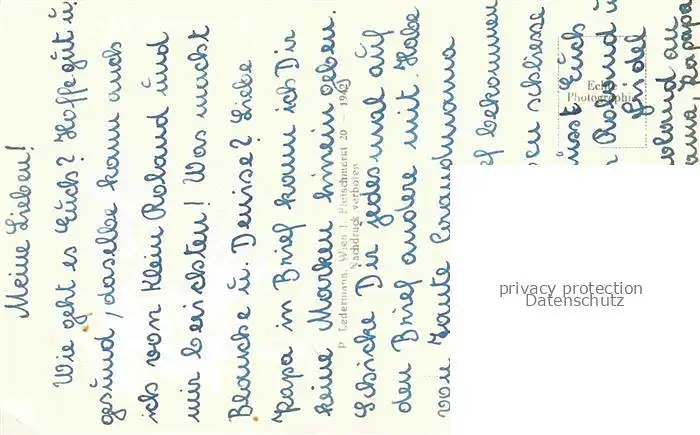 Meine Lieben!
Wie geht es Euch? Hoffe gut u.
gesund, dasselbe kann auch
ich von Klein Roland und
mir berichten! Was macht
Blanche u. Denise? Liebe
Papa in Brief kann ich Dir
keine Marken hinein geben.
Schicke Dir jedesmal auf
den Brief andere mit. Habe
von Tante
bekommen
schliesse
Euch
Roland u
Gidel
Roland au
Papa
P. Ledermann, Wien I, Fleischmarkt 20 — 1942
Nachdruck verboten
Echte
Photographie
privacy protection
Datenschutz